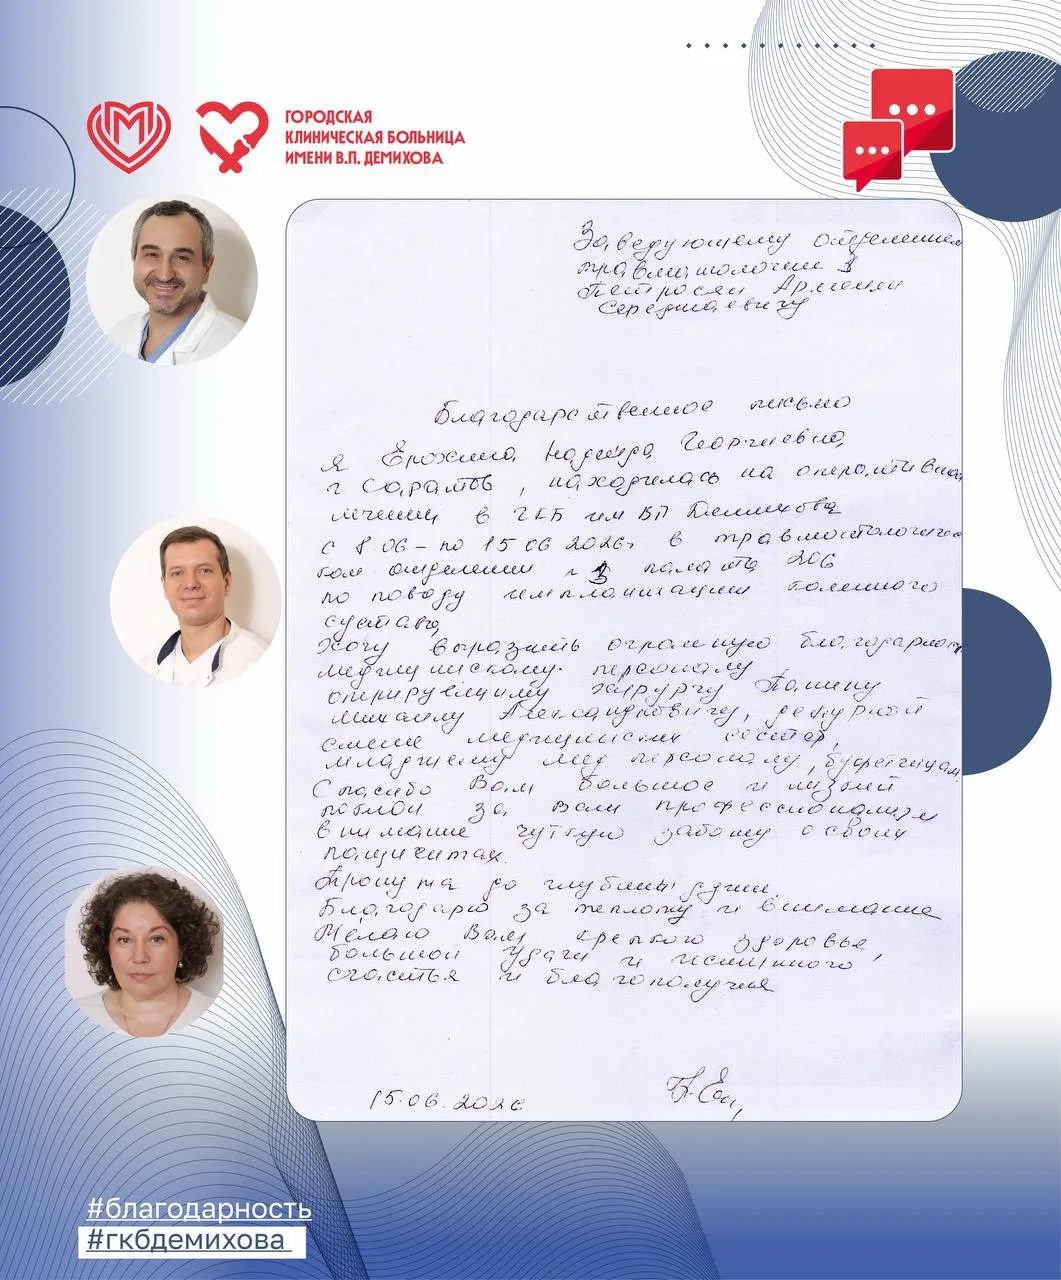 ГОРОДСКАЯ
КЛИНИЧЕСКАЯ БОЛЬНИЦА
ИМЕНИ В.П. ДЕМИХОВА
Заведующему отделением
травматологии
Петросян Армену
Сережаевичу
Благодарственное письмо
Я Ерохина Надежда Георгиевна,
г Саратов, находилась на оперативном
лечении в ГКБ им ВП Демихова
с 8.06 – по 15 06 2026г в травматологичес
ком отделении палата 206
по поводу имплантации коленного
сустава,
Хочу выразить огромную благодарность
медицинскому персоналу
оперирующему хирургу Панину
Михаилу Александровичу, дежурной
смене медицинских сестер,
младшему мед персоналу, буфетчицам.
Спасибо Вам большое и низкий
поклон за Ваш профессионализм
внимание чуткую заботу о своих
пациентах.
Тронута до глубины души.
Благодарю за теплоту и внимание
Желаю Вам крепкого здоровья,
большой удачи и истинного
счастья и благополучия
15.06.2026
#благодарность
#гкбдемихова